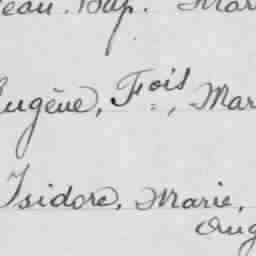 ean. Bap. Mar
Eugène, Fois, Mar
Isidore, Marie,
Aug